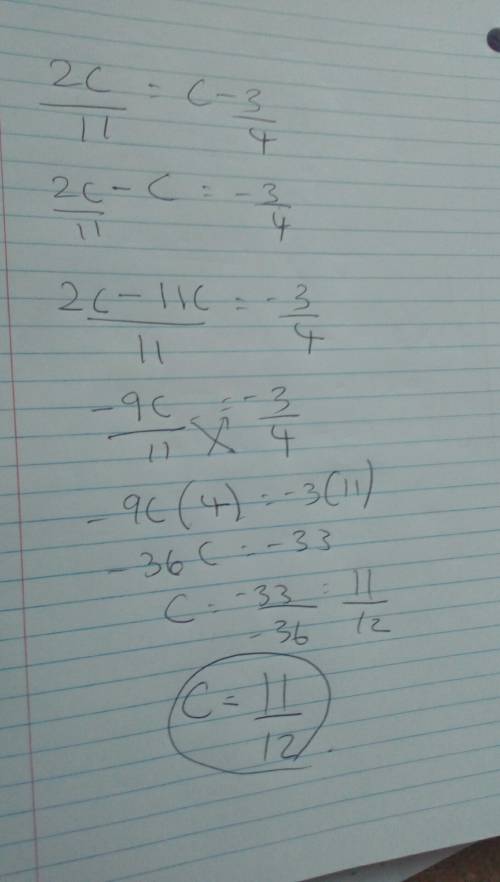 2c/11 = c - 3/4
2c/11 - c = -3/4
2c - 11c/11 = -3/4
-9c/11 = -3/4
-9c(4) = -3(11)
-36c = -33
c = -33/-36 = 11/12
c = 11/12.